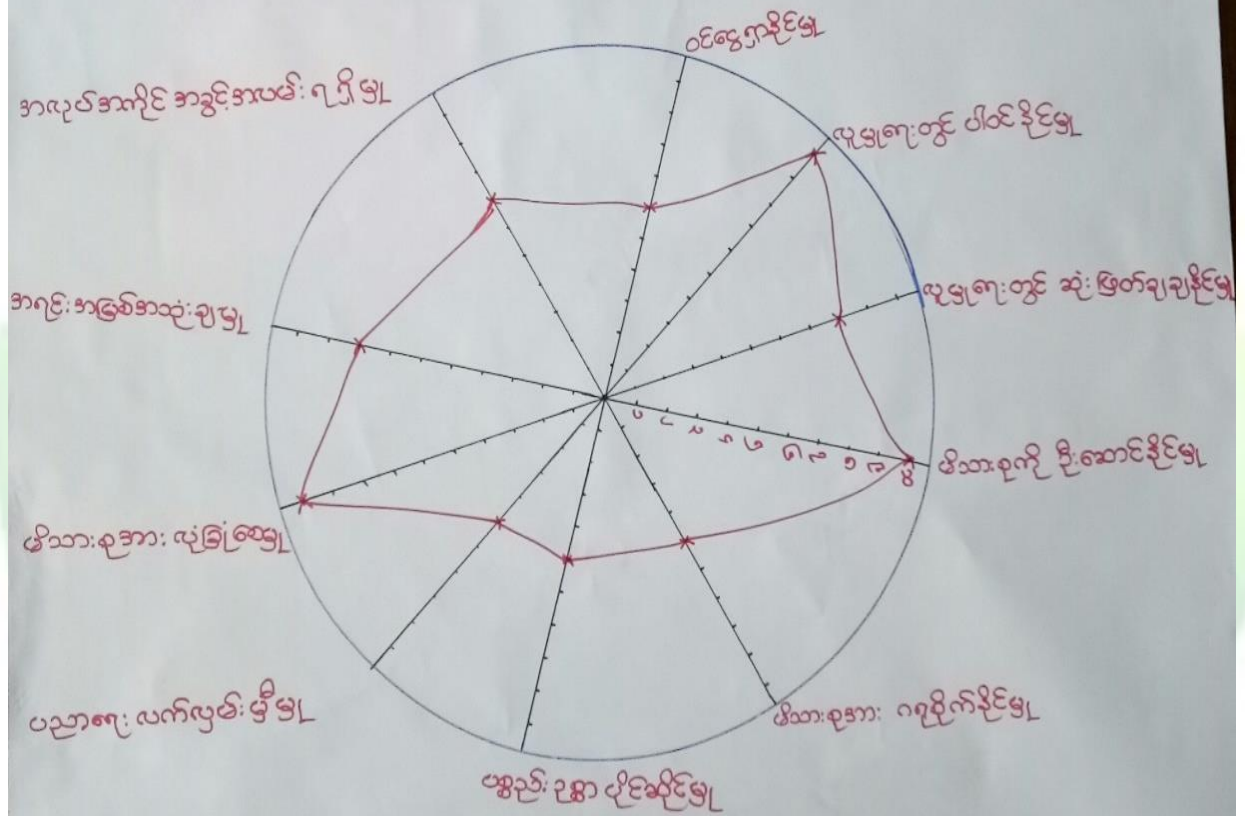 ဝင်ငွေရှာနိုင်မှု
လူမှုရေးတွင် ပါဝင်နိုင်မှု
လူမှုရေးတွင် ဆုံးဖြတ်ချချနိုင်မှု
မိသားစုကို ဦးဆောင်နိုင်မှု
မိသားစုအား ဂရုစိုက်နိုင်မှု
ပစ္စည်းဥစ္စာ ပိုင်ဆိုင်မှု
ပညာရေး လက်လှမ်းမှီမှု
မိသားစုအား လုံခြုံစေမှု
အရင်းအမြစ်အသုံးချမှု
အလုပ်အကိုင် အခွင့်အလမ်းရရှိမှု
၁ ၂ ၃ ၄ ၅ ၆ ၇ ၈ ၉ ၁၀